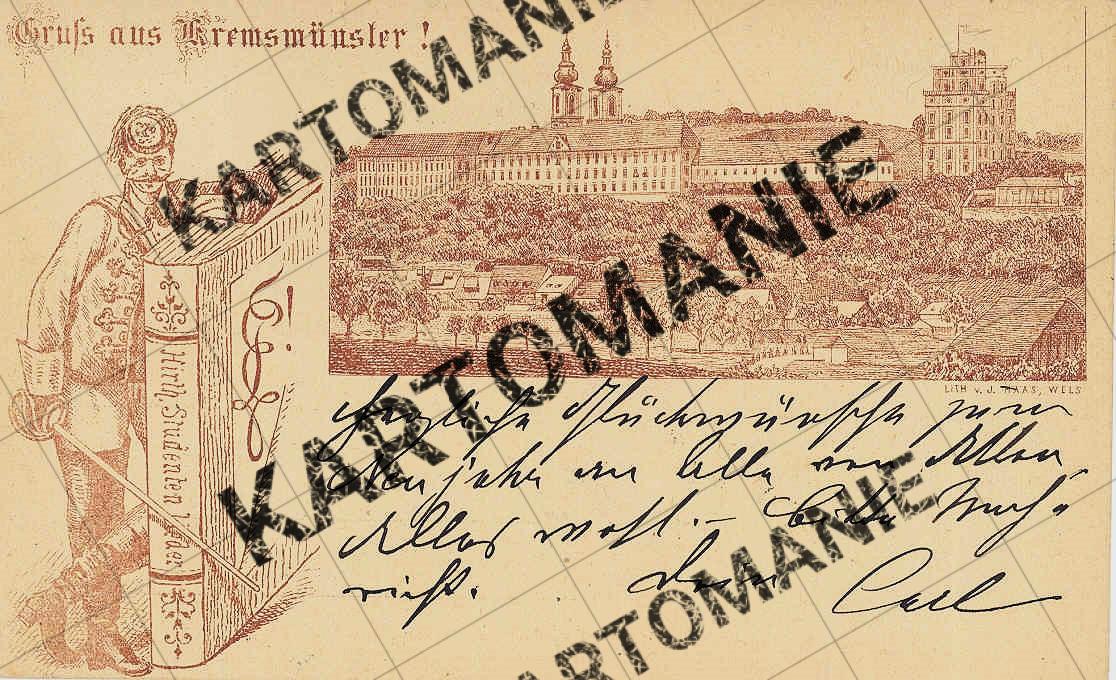 Gruss aus Kremsmünster!
KARTOMANIE
KARTOMANIE
KARTOMANIE
Hirth, Studentenlieder
LITH V. J. HAAS, WELS
Herzliche Glückwünsche zum
Neujahr an Alle von Allen.
Alles wohl. – Bitte Nach-
richt. Dein Carl